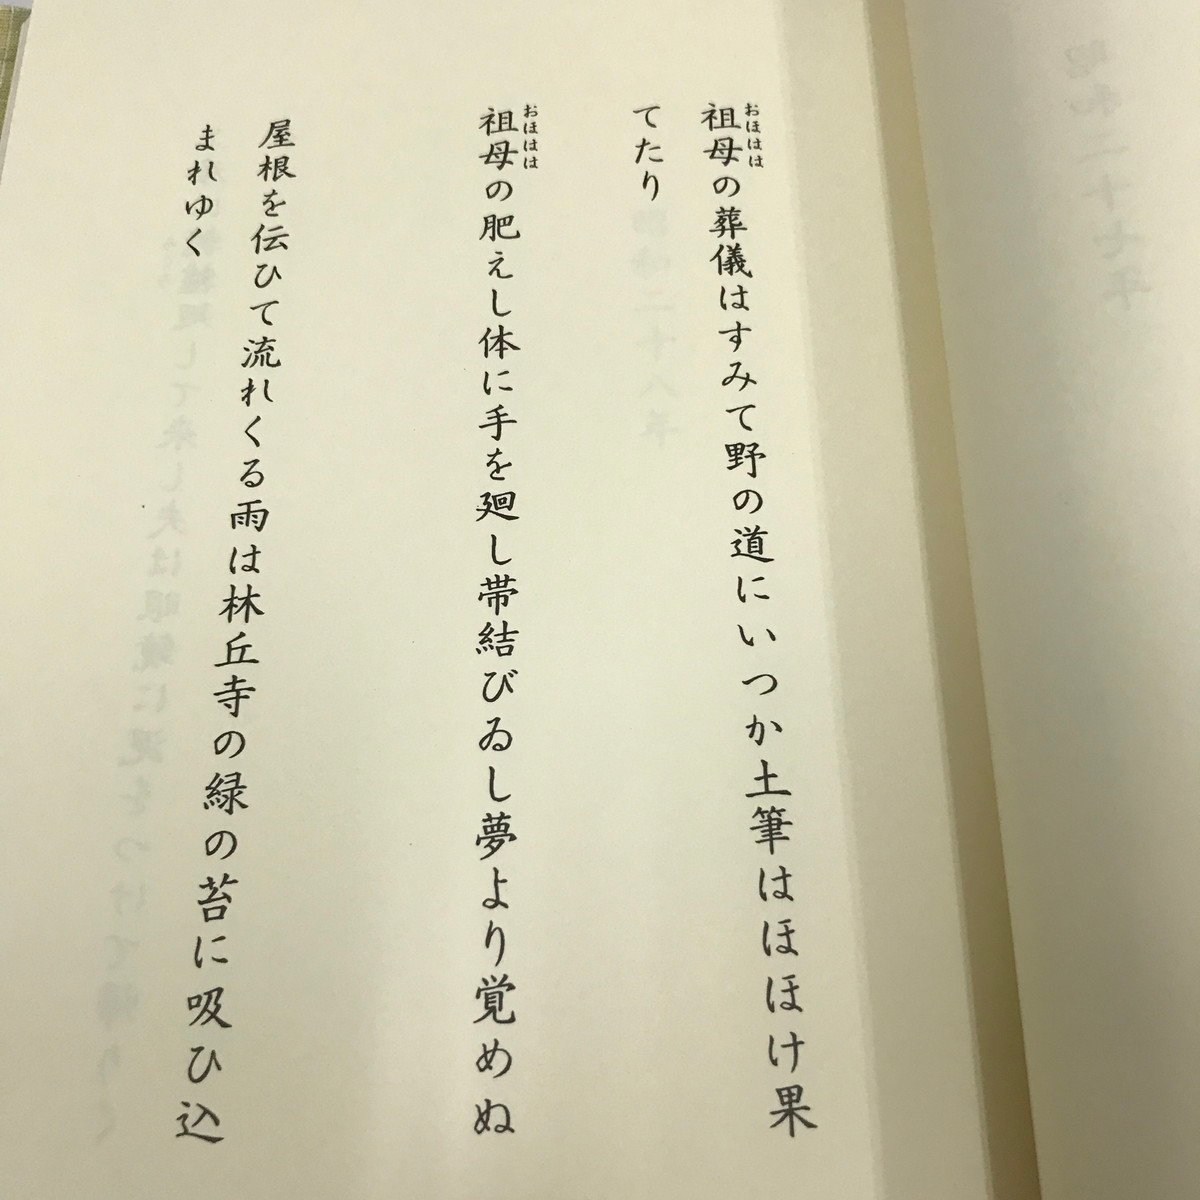 祖母の葬儀はすみて野の道にいつか土筆はほほけ果
おほはは
てたり
祖母の肥えし体に手を廻し帯結びゐし夢より覚めぬ
おほはは
屋根を伝ひて流れくる雨は林丘寺の緑の苔に吸ひ込
まれゆく
昭和二十七年
昭和二十八年